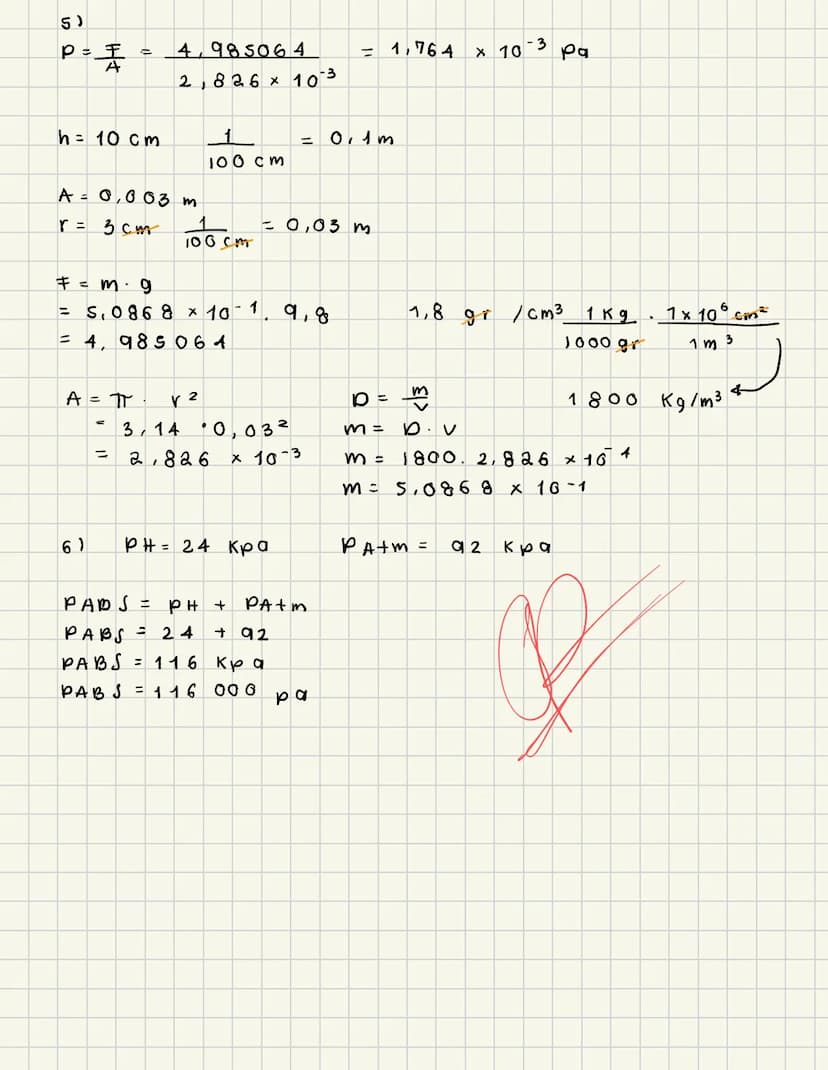 5)
P = F/A = 4,985064 / 2,826 × 10⁻³ = 1,764 × 10⁻³ pa
h = 10 cm 1/100 cm = 0,1 m
A = 0,003 m
r = 3 cm 1/100 cm = 0,03 m
F = m · g
= 5,0868 × 10⁻¹ . 9,8
= 4,985064
1,8 gr /cm³ 1 Kg / 1000 gr . 1 × 10⁶ cm² / 1 m³
1800 Kg/m³
A = π · r²
= 3,14 · 0,03²
= 2,826 × 10⁻³
D = m/v
m = D . v
m = 1800 . 2,826 × 10⁻⁴
m = 5,0868 × 10⁻¹
6) PH = 24 Kpa PAtm = 92 Kpa
PABS = PH + PAtm
PABS = 24 + 92
PABS = 116 Kpa
PABS = 116 000 pa